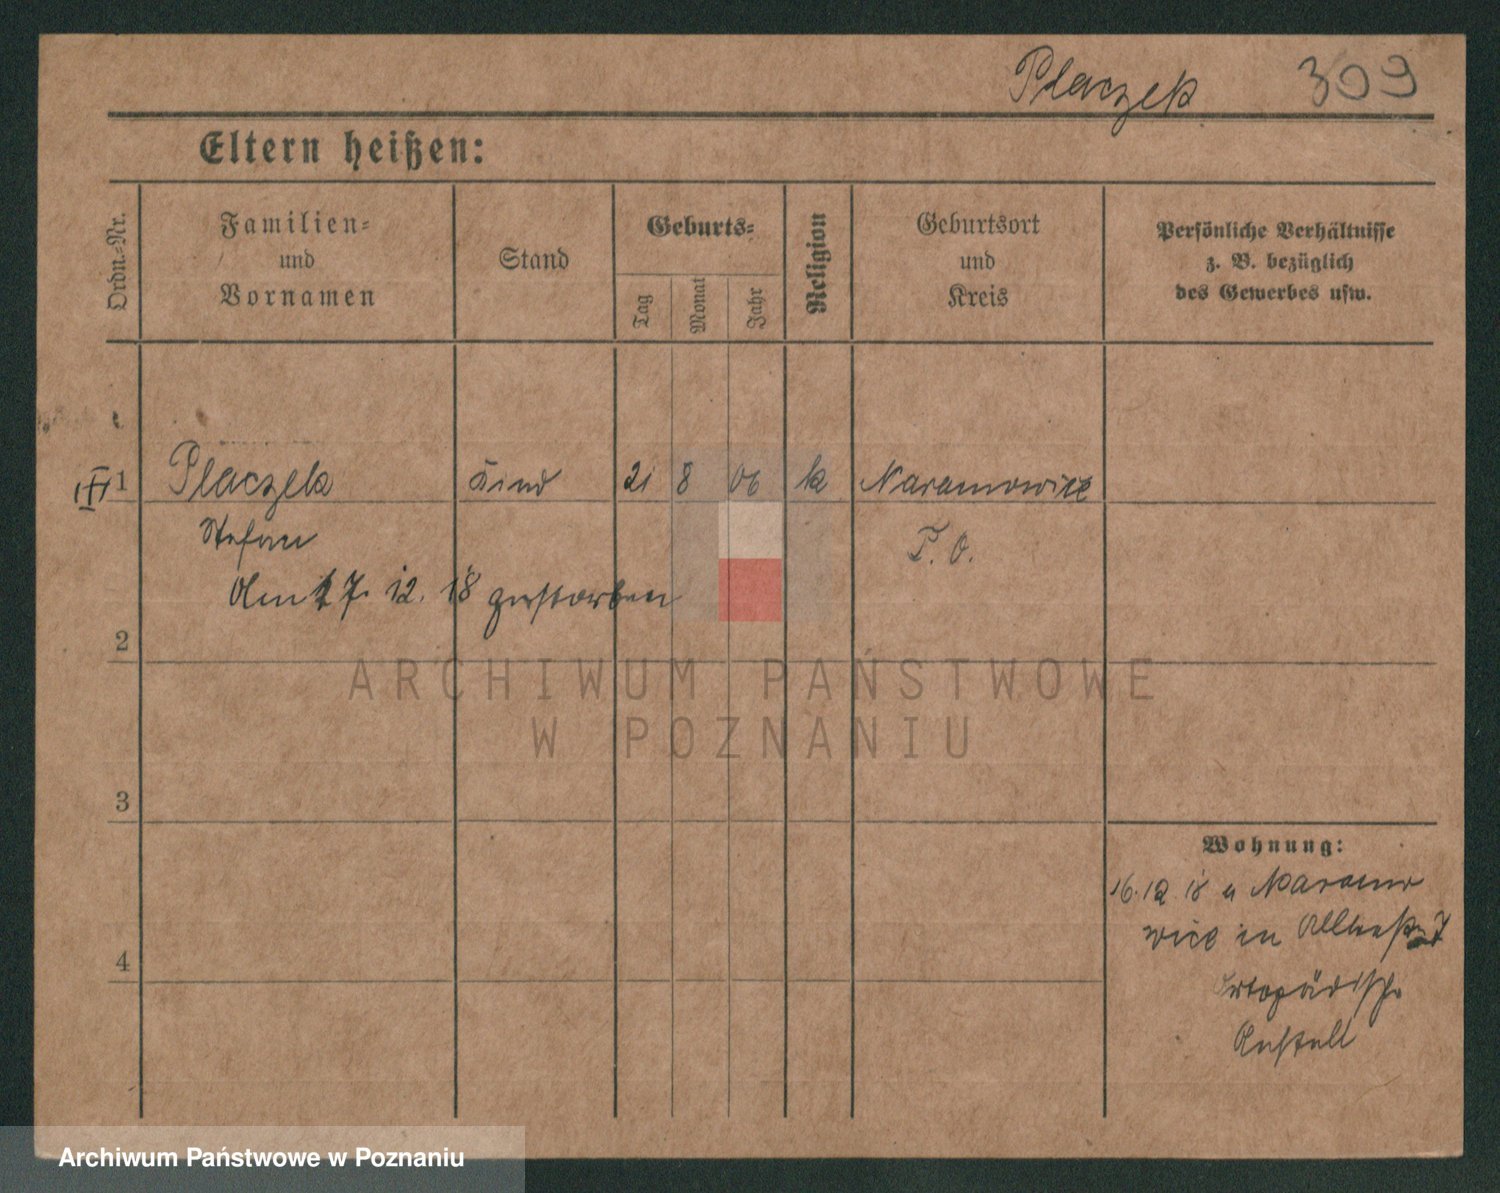 Placzek 309
Eltern heißen:
Ordn.-Nr.
Familien-
und
Vornamen
Stand
Geburts-
Tag
Monat
Jahr
Religion
Geburtsort
und
Kreis
Persönliche Verhältnisse
z. B. bezüglich
des Gewerbes usw.
1 Placzek Kind 21 8 06 k Naramowice
Stefan P. O.
Am 17. 12. 18 gestorben
2
3
4
Wohnung:
16.12.18 Naramo
wice in
Ortopädische
Anstalt
ARCHIWUM PAŃSTWOWE
W POZNANIU
Archiwum Państwowe w Poznaniu